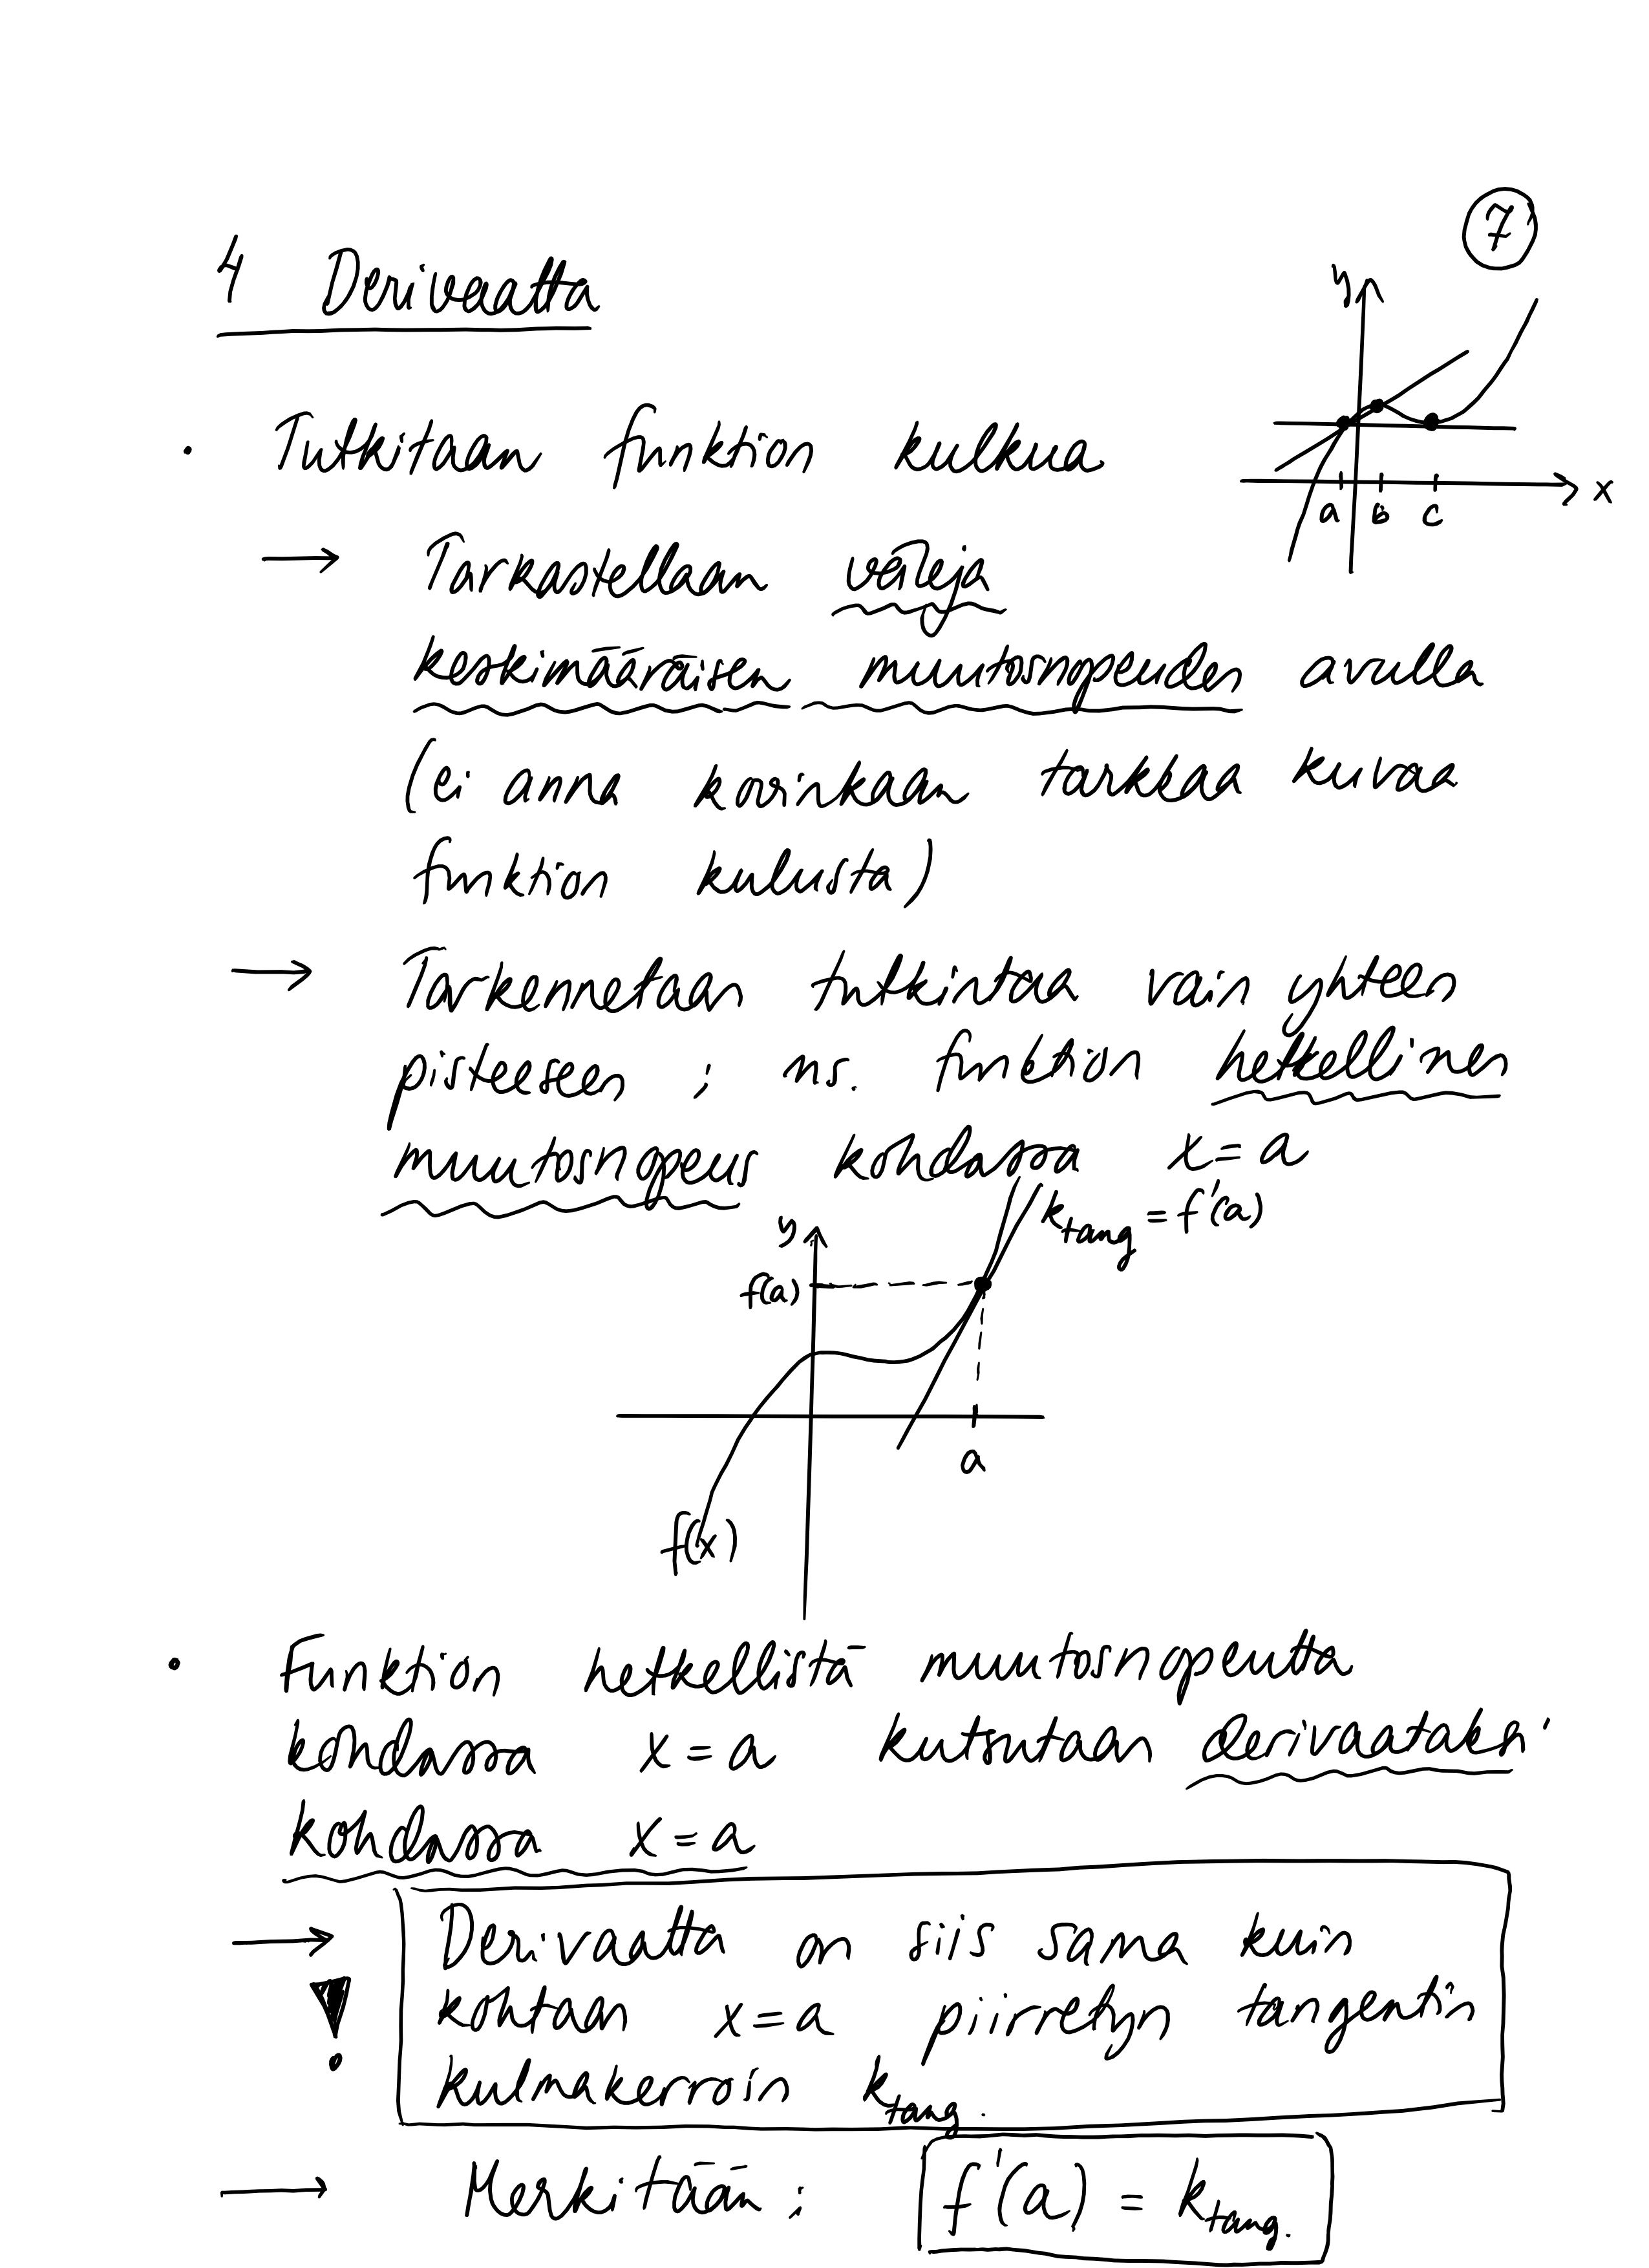 7
4 Derivaatta
y
· Tutkitaan funktion kulkua
x
a b c
→ Tarkastellaan välejä
keskimääräisen muutosnopeuden avulla
(ei anna kovinkaan tarkkaa kuvaa
funktion kulusta)
→ Tarkennetaan tutkintaa vain yhteen
pisteeseen ; ns. funktion hetkellinen
muutosnopeus kohdassa x = a
k_tang = f'(a)
y
f(a)
a
f(x)
· Funktion hetkellistä muutosnopeutta
kohdassa x = a kutsutaan derivaataksi
kohdassa x = a
→ Derivaatta on siis sama kuin
! kohtaan x = a piirretyn tangentin
kulmakerroin k_tang.
→ Merkitään ; f'(a) = k_tang.